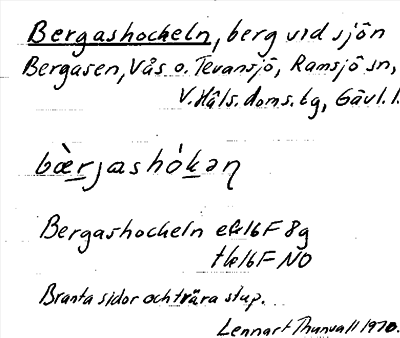 Bergashockeln, berg vid sjön
Bergasen, Vås o. Tevansjö, Ramsjö sn,
V. Häls. doms. tg, Gävl. l.
bæ̀rjashókən̥
Bergashockeln ek16F 8g
tk16F NO
Branta sidor och tvära stup.
Lennart Thunvall 1970.